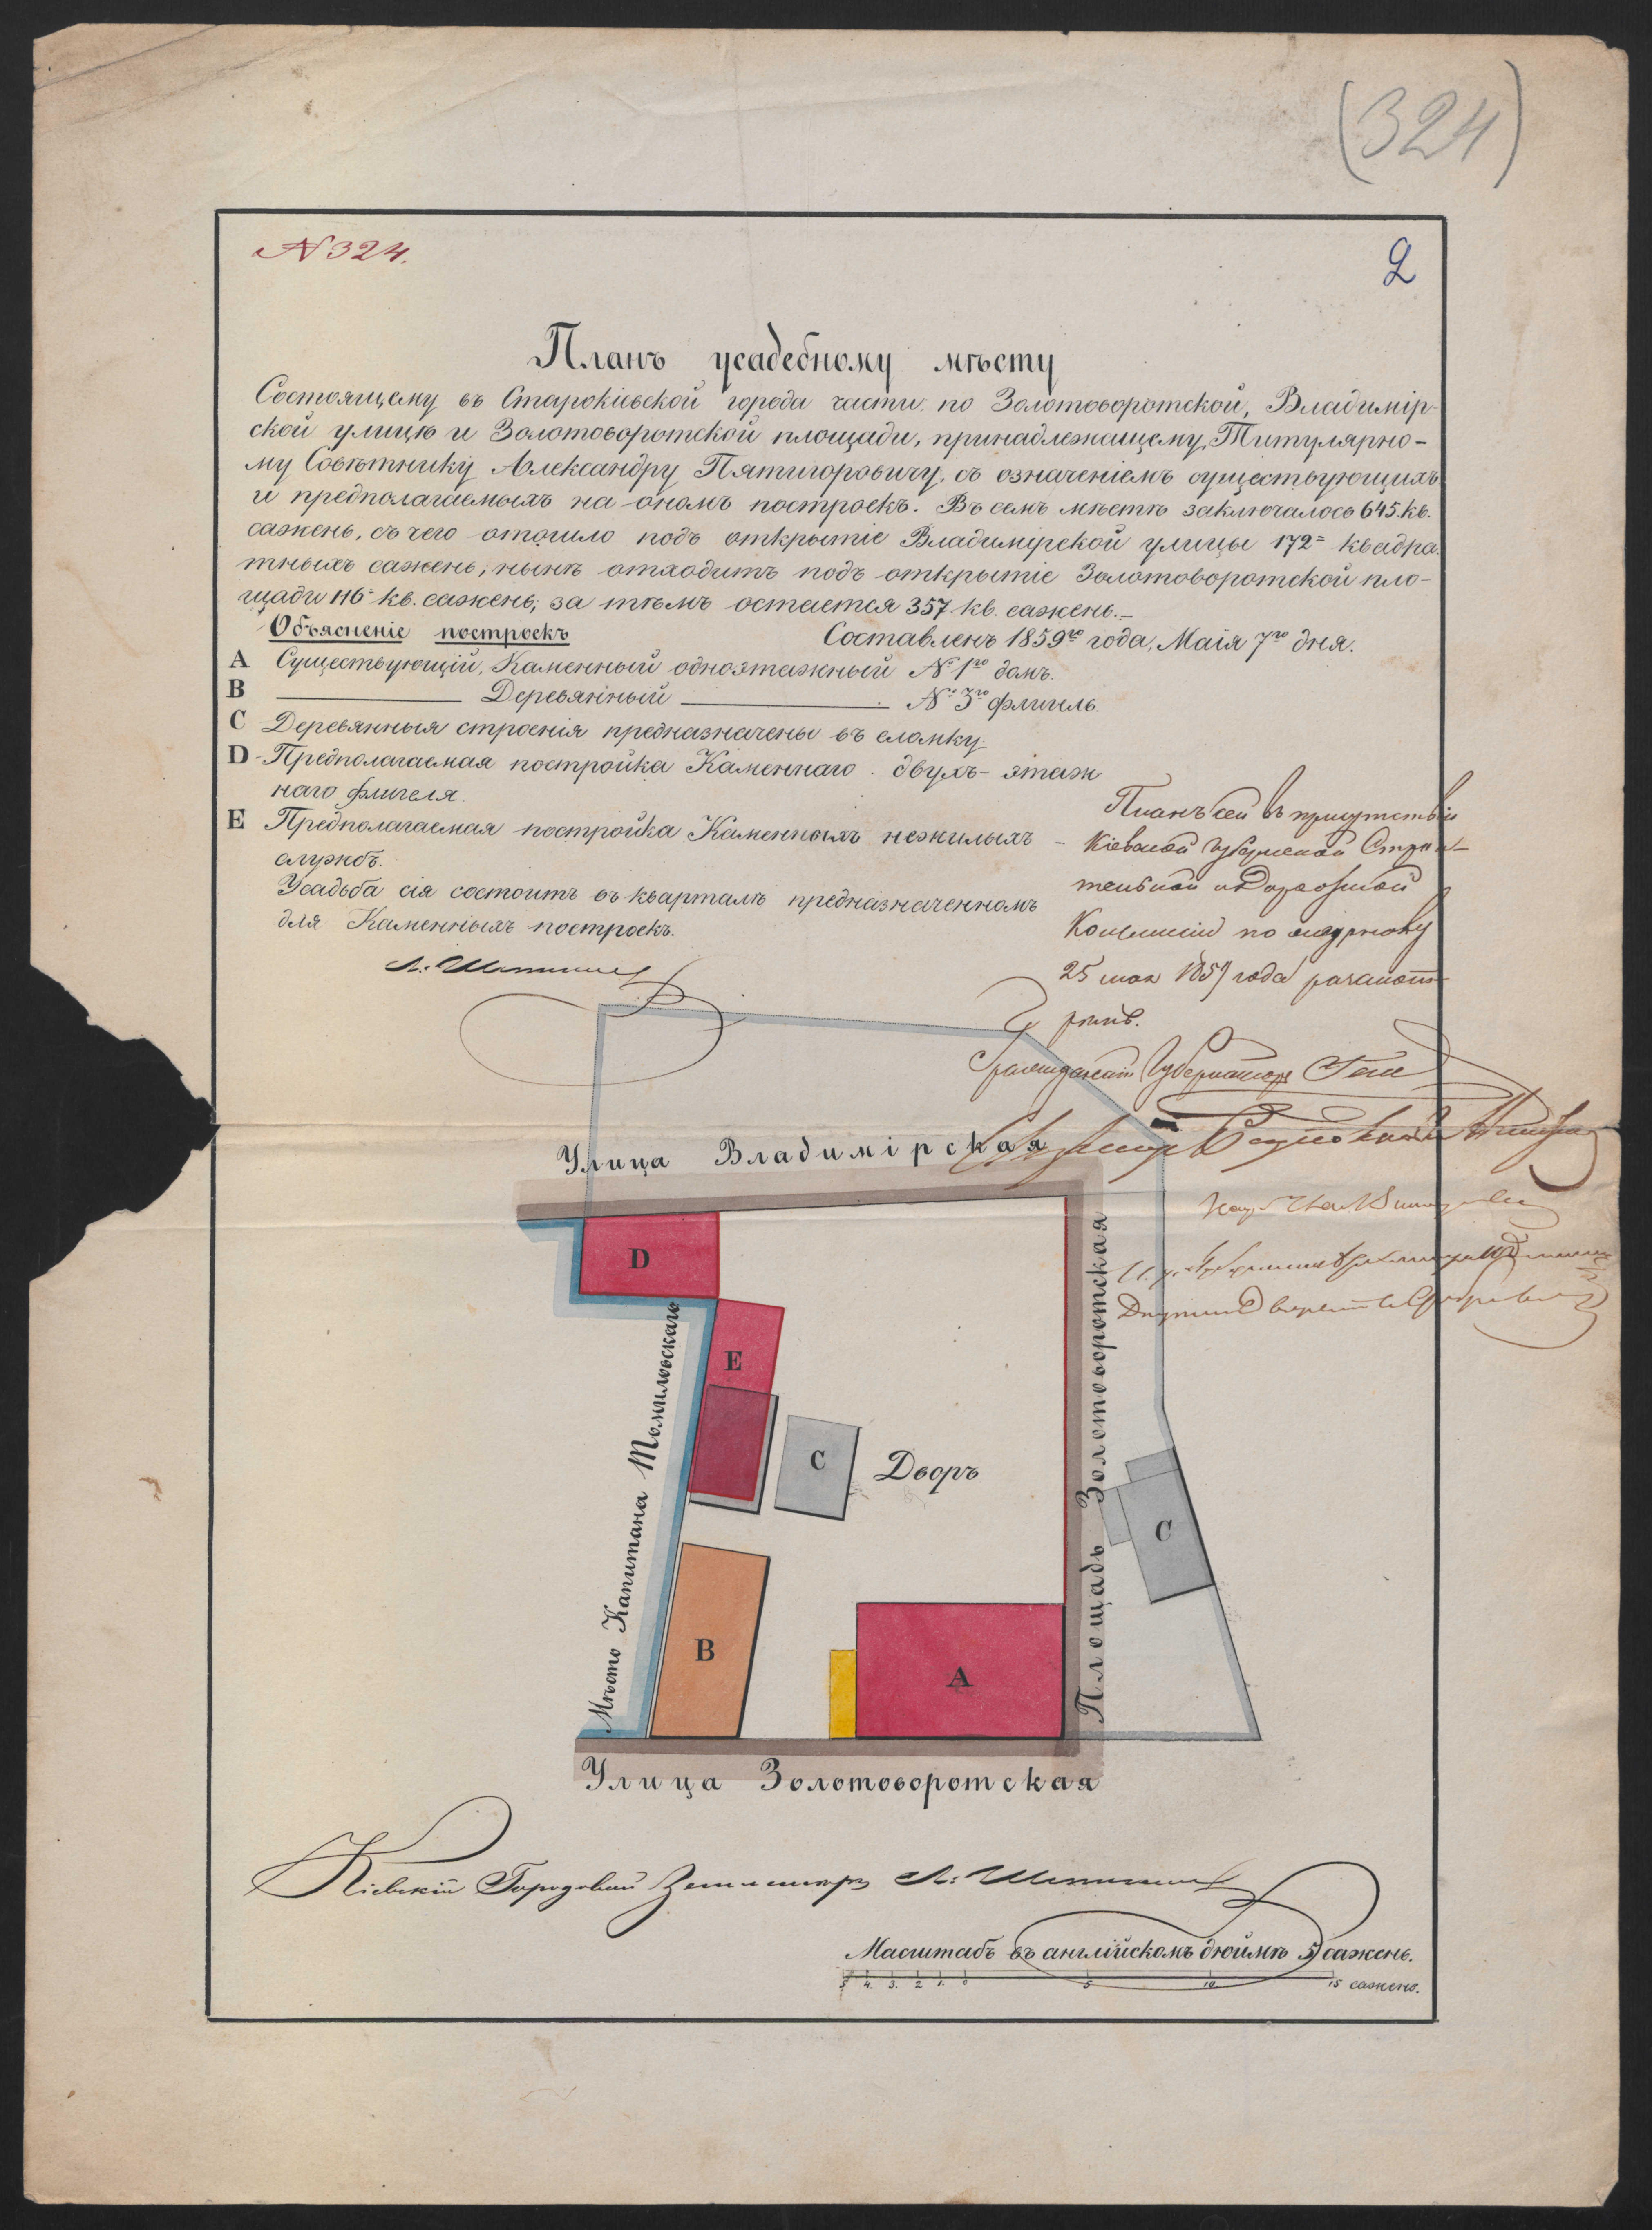 (324)
N 324.
2
Планъ усадебному мѣсту
Состоящему въ Старокіевской города части по Золотоворотской, Владимір-
ской улицѣ и Золотоворотской площади, принадлежащему, Титулярно-
му Совѣтнику Александру Пятигоровичу, съ означеніемъ существующихъ
и предполагаемыхъ на ономъ построекъ. Въ семъ мѣстѣ заключалось 645 кв.
сажень, съ чего отошло подъ открытіе Владимірской улицы 172 квадра
тныхъ сажень; нынѣ отходитъ подъ открытіе Золотоворотской пло-
щади 116 кв. сажень; за тѣмъ остается 357 кв. сажень.—
Объясненіе построекъ
Составленъ 1859го года, Маія 7го дня.
A Существующій, Каменный одноэтажный №1го домъ.
B ——— Деревянный ——— №3го флигель.
C Деревянныя строенія предназначены въ сломку.
D Предполагаемая постройка Каменнаго двухъ-этаж-
наго флигеля.
E Предполагаемая постройка Каменныхъ нежилыхъ -
службъ.
Усадьба сія состоитъ въ кварталѣ предназначенномъ
для Каменныхъ построекъ.
Планъ сей въ присутствіи
Кіевской Губернской Строи-
тельной и Дорожной
Коммисіи по журналу
25 мая 1859 года разсмот-
рѣнъ.
Гражданскій Губернаторъ
Улица Владимірская
D
E
C
Дворъ
C
B
A
Мѣсто Капитана Томиловскаго
Площадь Золотоворотская
Улица Золотоворотская
Кіевскій Городовой Землемѣръ
Масштабъ въ англійскомъ дюймѣ 5 сажень.
5 4. 3. 2 1. 0 5 10 15 сажень.